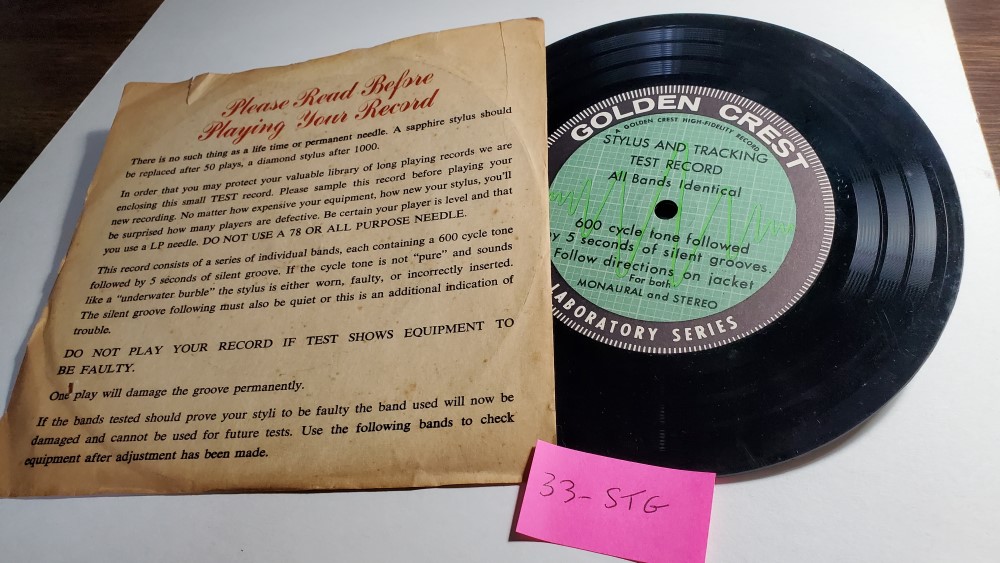 Please Read Before
Playing Your Record
There is no such thing as a life time or permanent needle. A sapphire stylus should
be replaced after 50 plays, a diamond stylus after 1000.
In order that you may protect your valuable library of long playing records we are
enclosing this small TEST record. Please sample this record before playing your
new recording. No matter how expensive your equipment, how new your stylus, you'll
be surprised how many players are defective. Be certain your player is level and that
you use a LP needle. DO NOT USE A 78 OR ALL PURPOSE NEEDLE.
This record consists of a series of individual bands, each containing a 600 cycle tone
followed by 5 seconds of silent groove. If the cycle tone is not "pure" and sounds
like a "underwater burble" the stylus is either worn, faulty, or incorrectly inserted.
The silent groove following must also be quiet or this is an additional indication of
trouble.
DO NOT PLAY YOUR RECORD IF TEST SHOWS EQUIPMENT TO
BE FAULTY.
One play will damage the groove permanently.
If the bands tested should prove your styli to be faulty the band used will now be
damaged and cannot be used for future tests. Use the following bands to check
equipment after adjustment has been made.
GOLDEN CREST
A GOLDEN CREST HIGH-FIDELITY RECORD
STYLUS AND TRACKING
TEST RECORD
All Bands Identical
600 cycle tone followed
by 5 seconds of silent grooves.
Follow directions on jacket
For both
MONAURAL and STEREO
LABORATORY SERIES
33-STG